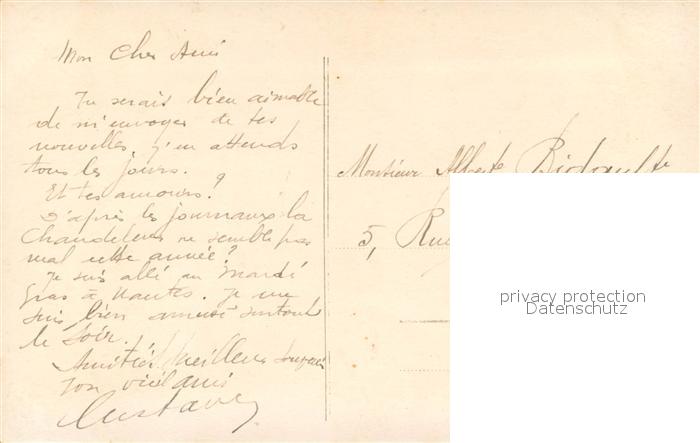 Mon Cher Ami
Tu serais bien aimable
de m'envoyer de tes
nouvelles, j'en attends
tous les jours.
Et tes amours ?
D'après les journaux la
Chandeleur ne semble pas
mal cette année ?
Je suis allé au Mardi
gras à Nantes. Je me
suis bien amusé surtout
le soir.
Amitiés Meilleurs
ton vieil ami
Gustave
Monsieur Alberte
5, Rue
privacy protection
Datenschutz